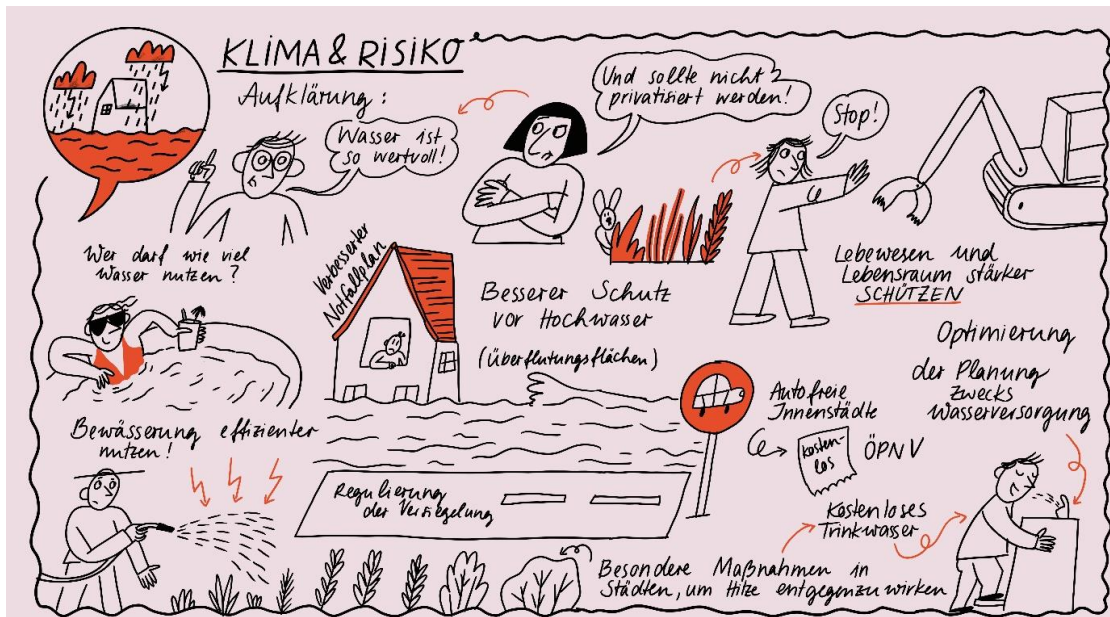 KLIMA & RISIKO
Aufklärung:
Wasser ist
so wertvoll!
Und sollte nicht
privatisiert werden!
Stop!
Wer darf wie viel
Wasser nutzen?
Verbesserter
Notfallplan
Besserer Schutz
vor Hochwasser
(Überflutungsflächen)
Lebewesen und
Lebensraum stärker
SCHÜTZEN
Optimierung
der Planung
zwecks
Wasserversorgung
Autofreie
Innenstädte
kosten-
los
ÖPNV
Bewässerung effizienter
nutzen!
Regulierung
der Versiegelung
Kostenloses
Trinkwasser
Besondere Maßnahmen in
Städten, um Hitze entgegenzuwirken